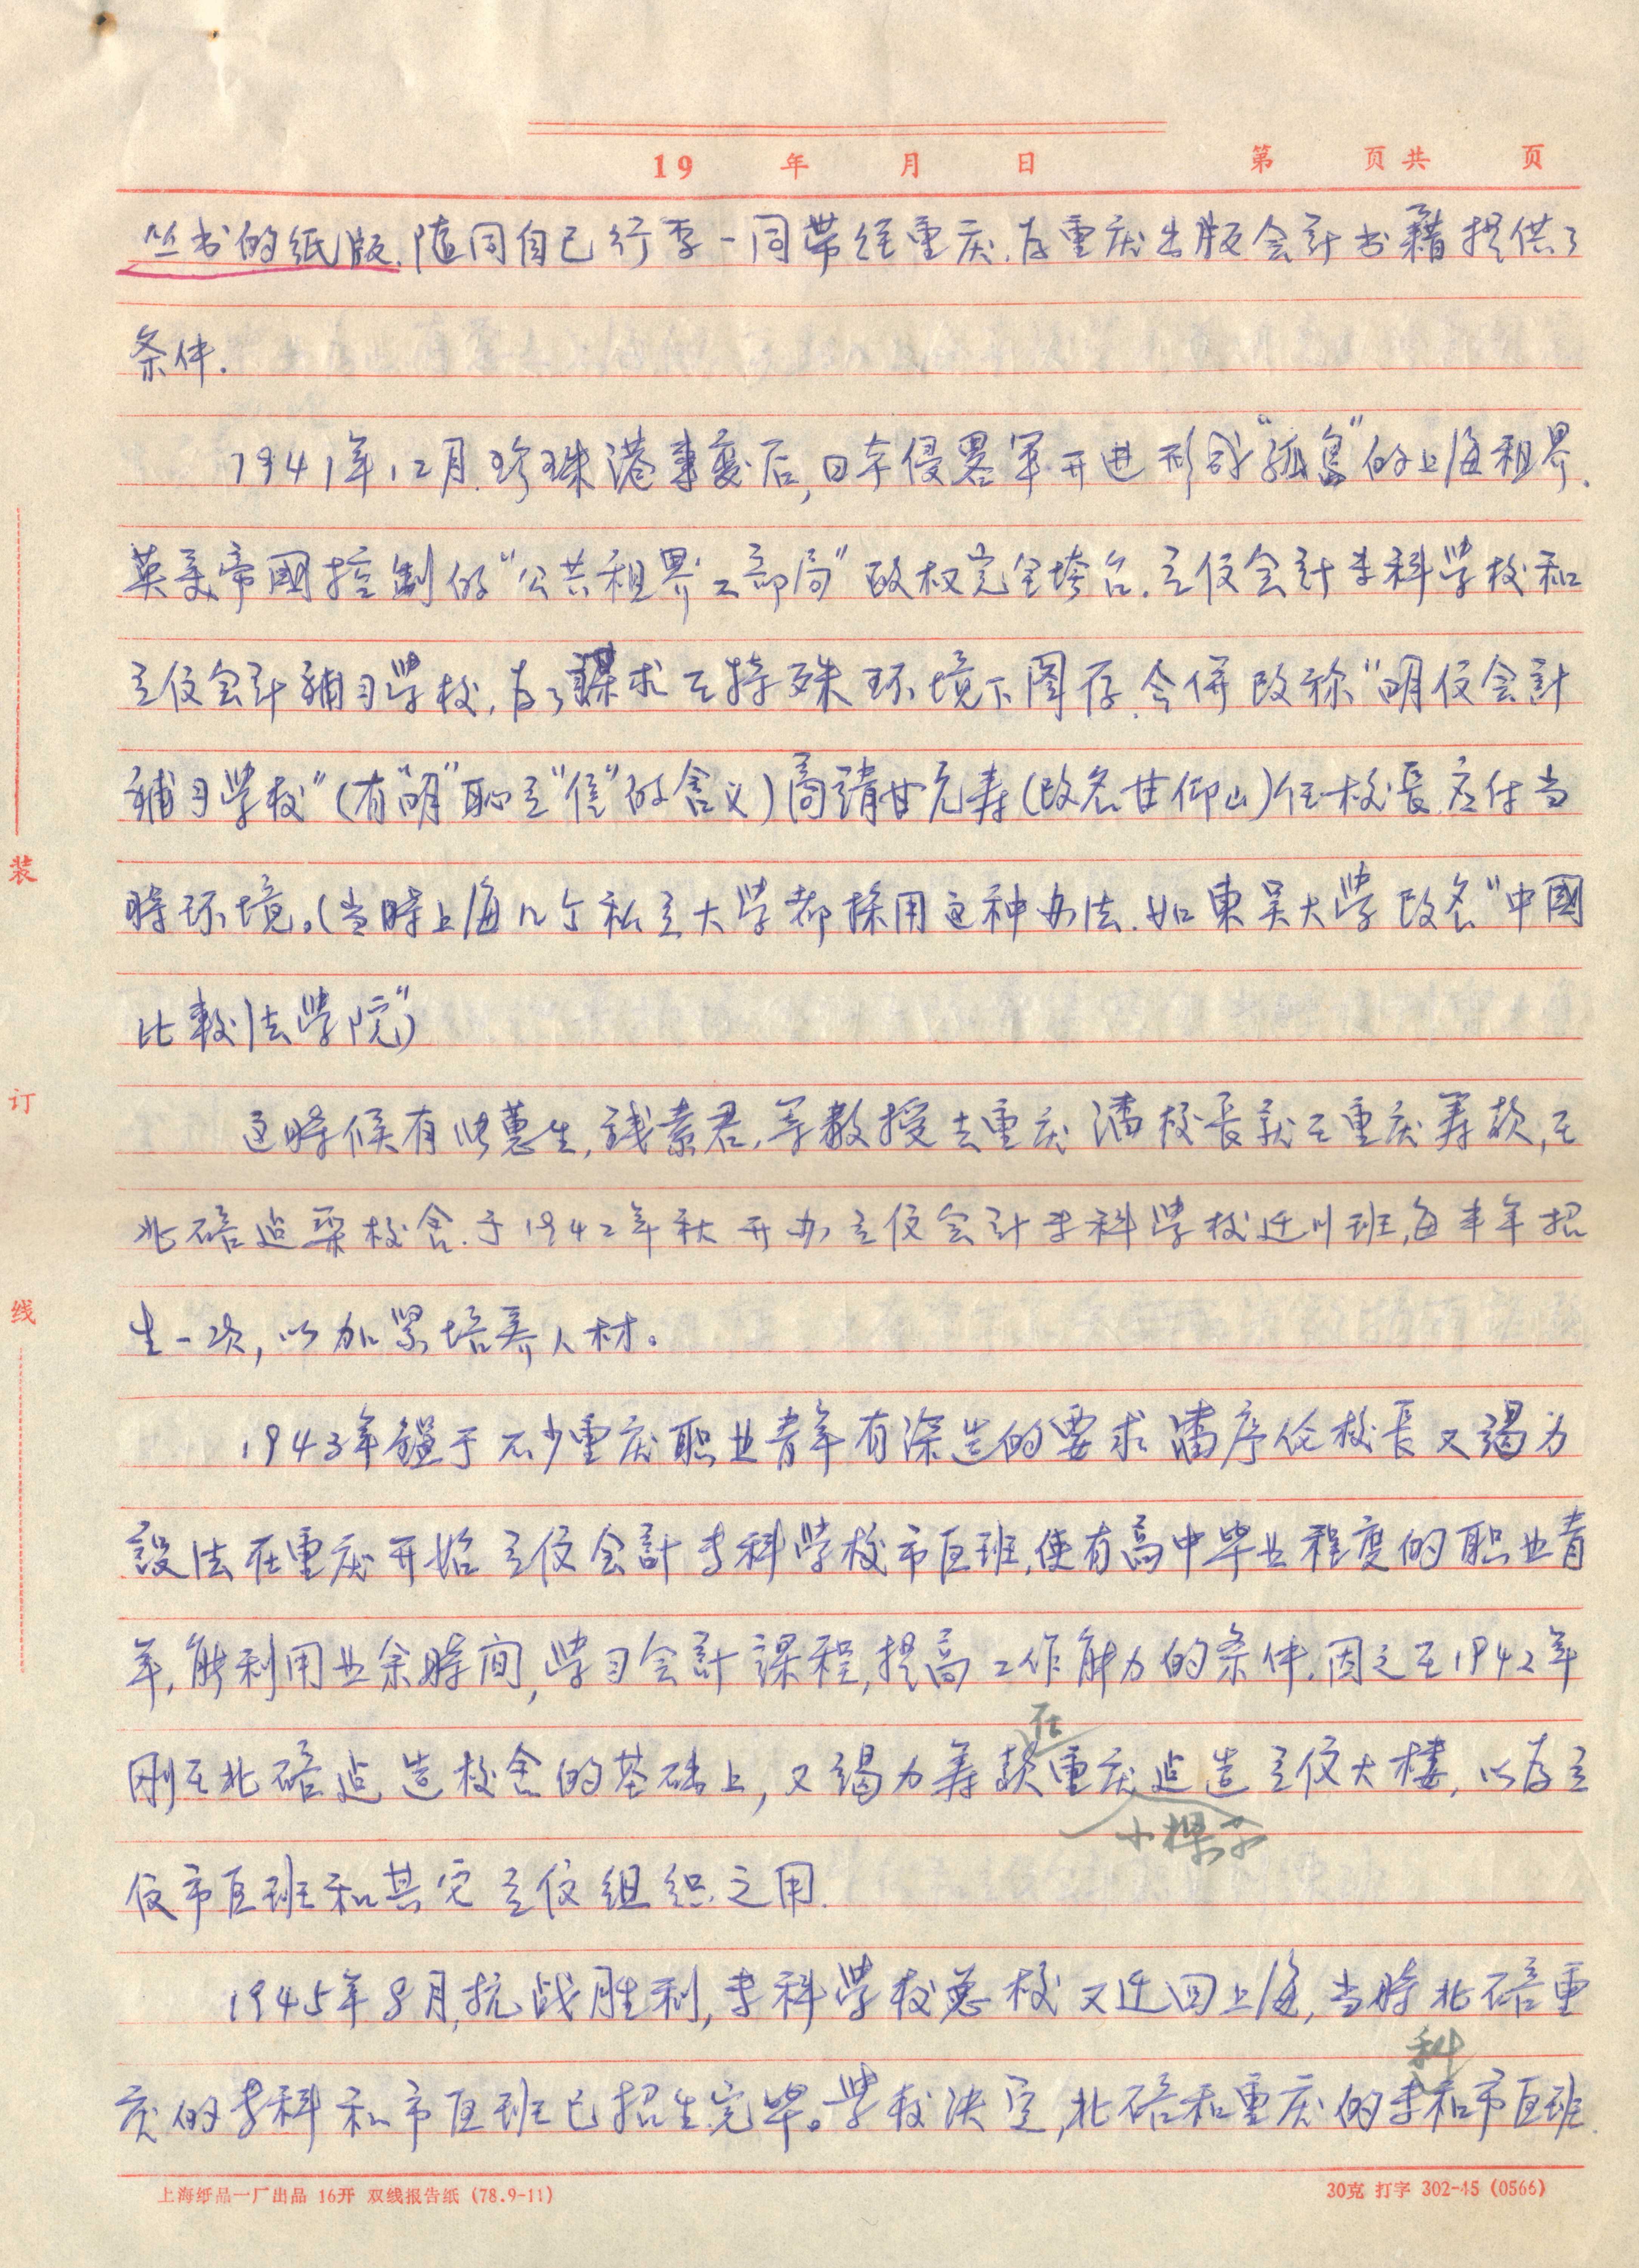 19 年 月 日 第 页共 页
丛书的纸版.随同自己行李一同带往重庆.为重庆出版会计书籍提供了
条件.
1941年12月.珍珠港事变后,日本侵略军开进形成"孤島"的上海租界.
英美帝國控制的"公共租界工部局"政权完全垮台.立信会計专科学校和
立信会計補习学校,为了謀求在特殊环境下图存.合併改称"明信会計
補习学校"(有"明"恥立"信"的含义)商請甘允寿(改名甘仰山)任校長.应付当
時环境。(当時上海几个私立大学都採用这种办法.如東吴大学改名"中國
比較法学院")
这時候有 蕙生,钱素君,等教授去重庆 潘校長就在重庆筹款,在
北碚造 校舍.于1942年秋开办立信会計专科学校迁川班,每半年招
生一次,以加緊培养人材。
1943年鑑于不少重庆职业青年有深造的要求 潘序伦校長又竭力
設法在重庆开始立信会計专科学校市区班,使有高中毕业程度的职业青
年,能利用业余時间,学习会計課程,提高工作能力的条件.因之在1942年
刚在北碚造造校舍的基础上,又竭力筹款在重庆造造立信大楼,以为立
小樑子
信市区班和其它立信组织之用.
1945年8月,抗战胜利,专科学校总校又迁回上海,当時北碚重
庆的专科和市区班已招生完毕。学校决定,北碚和重庆的专科和市区班.
装
订
线
上海纸品一厂出品 16开 双线报告纸 (78.9-11)
30克 打字 302-45 (0566)